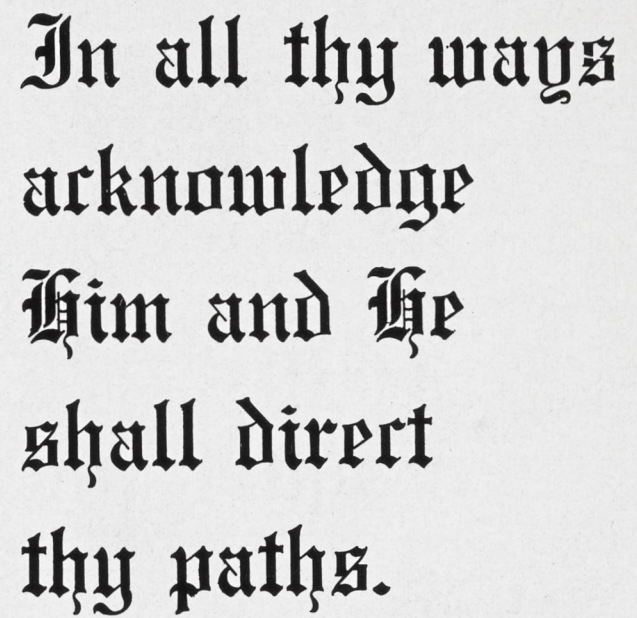 In all thy ways
acknowledge
Him and He
shall direct
thy paths.